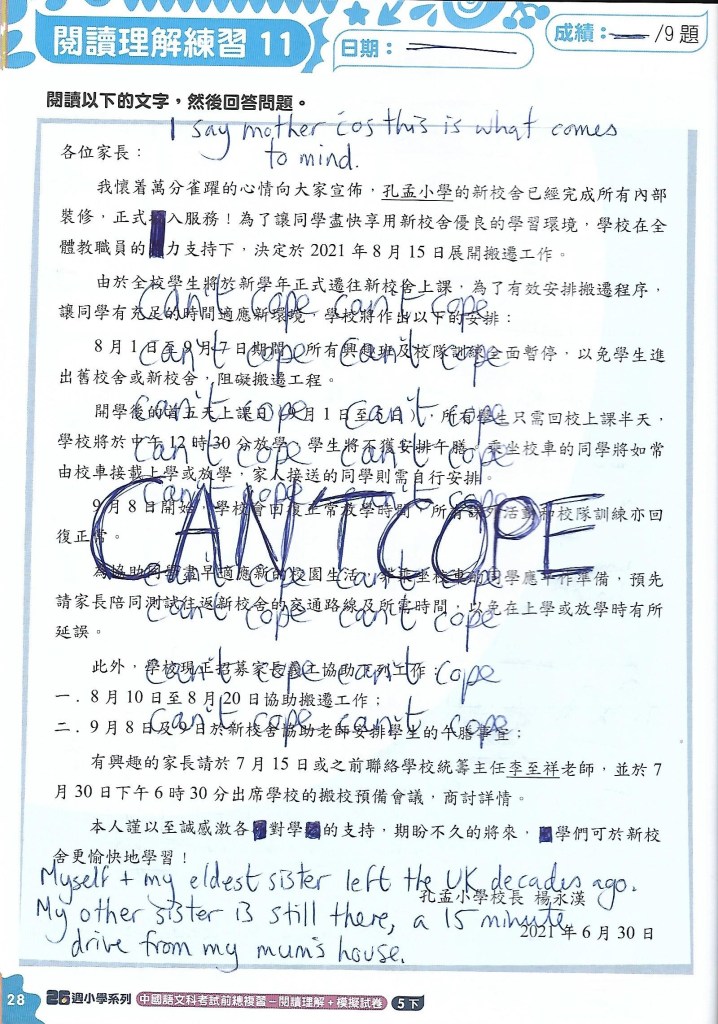 閱讀理解練習 11
日期：
成績： /9 題
閱讀以下的文字，然後回答問題。
I say mother cos this is what comes
to mind.
各位家長：
我懷着萬分雀躍的心情向大家宣佈，孔孟小學的新校舍已經完成所有內部
裝修，正式 入服務！為了讓同學盡快享用新校舍優良的學習環境，學校在全
體教職員的 力支持下，決定於 2021 年 8 月 15 日展開搬遷工作。
由於全校學生將於新學年正式遷往新校舍上課，為了有效安排搬遷程序，
can't cope can't cope
讓同學有充足的時間適應新環境，學校將作出以下的安排：
8 月 1 日至 9 月 7 日期間，所有興趣班及校隊訓練全面暫停，以免學生進
can't cope can't cope
出舊校舍或新校舍，阻礙搬遷工程。
can't cope can't cope
開學後的首五天上課日（9 月 1 日至 日），所有學生只需回校上課半天，
學校將於中午 12 時 30 分放學，學生將不獲安排午膳。乘坐校車的同學將如常
can't cope can't cope
由校車接載上學或放學，家人接送的同學則需自行安排。
can't cope can't cope
CAN'T COPE
9 月 8 日開始，學校會回復正常放學時間，所有課外活動和校隊訓練亦回
復正常。
can't cope can't cope
為協助同學盡早適應新的校園生活，乘坐校車的同學應 作準備，預先
請家長陪同測試往返新校舍的交通路線及所需時間，以免在上學或放學時有所
can't cope can't cope
延誤。
此外，學校現正招募家長義工協助下列工作：
can't cope can't cope
一．8 月 10 日至 8 月 20 日協助搬遷工作；
二．9 月 8 日及 9 日於新校舍協助老師安排學生的午膳事宜；
can't cope can't cope
有興趣的家長請於 7 月 15 日或之前聯絡學校統籌主任李至祥老師，並於 7
月 30 日下午 6 時 30 分出席學校的搬校預備會議，商討詳情。
本人謹以至誠感激各 對學 的支持，期盼不久的將來， 學們可於新校
舍更愉快地學習！
Myself + my eldest sister left the UK decades ago.
孔孟小學校長 楊永漢
My other sister is still there, a 15 minute
2021 年 6 月 30 日
drive from my mum's house.
28 26週小學系列 中國語文科考試前總複習－閱讀理解＋模擬試卷 5下